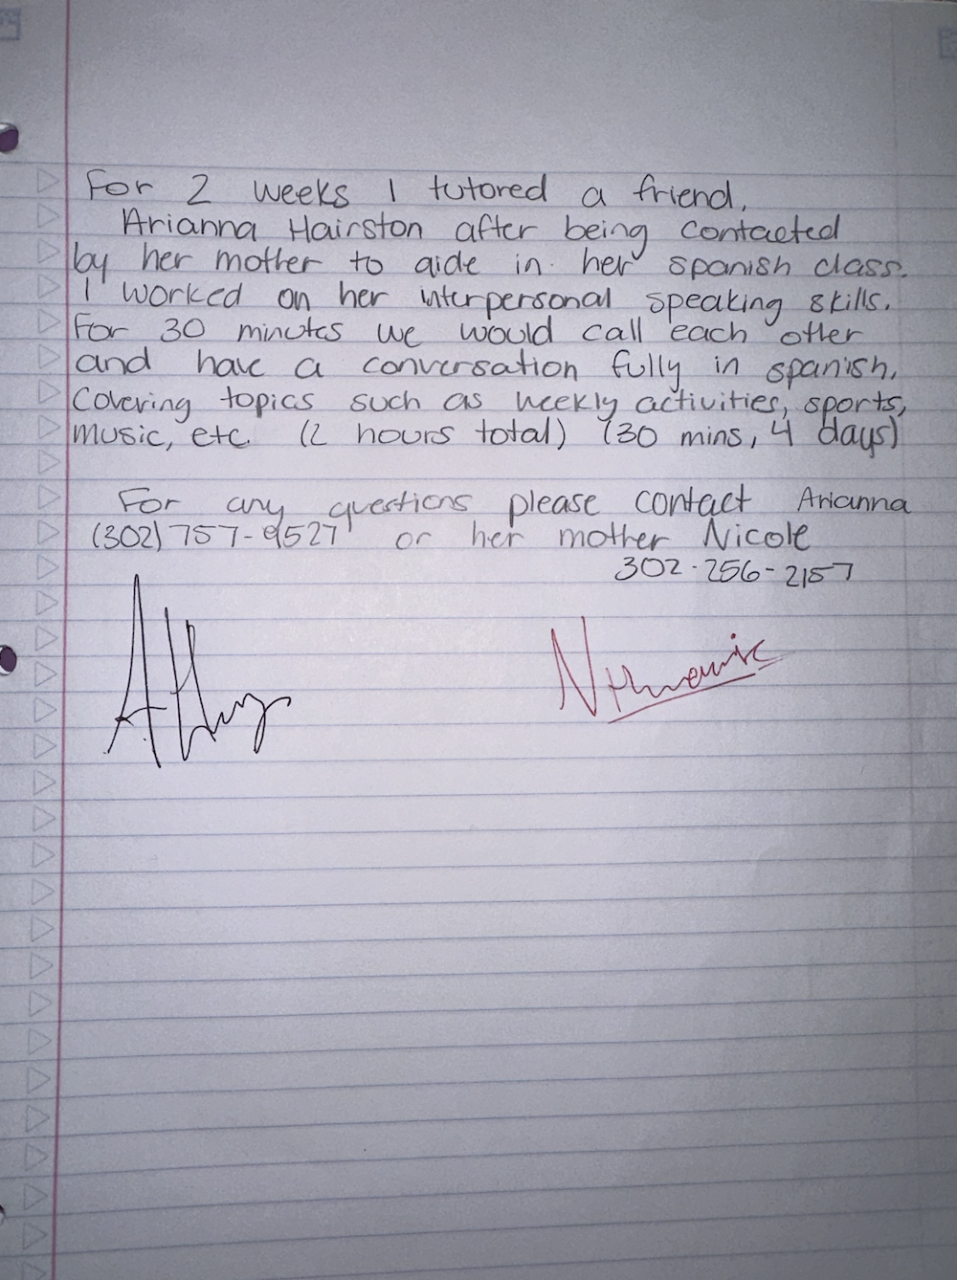 For 2 weeks I tutored a friend,
Arianna Hairston after being contacted
by her mother to aide in her spanish class.
I worked on her interpersonal speaking skills.
For 30 minutes we would call each other
and have a conversation fully in spanish,
Covering topics such as weekly activities, sports,
music, etc. (2 hours total) (30 mins, 4 days)
For any questions please contact Arianna
(302) 757-9527 or her mother Nicole
302-256-2157